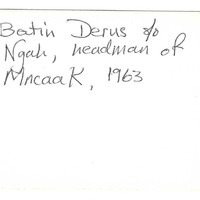 Batin Derus s/o
Ngah, headman of
MncaaK, 1963